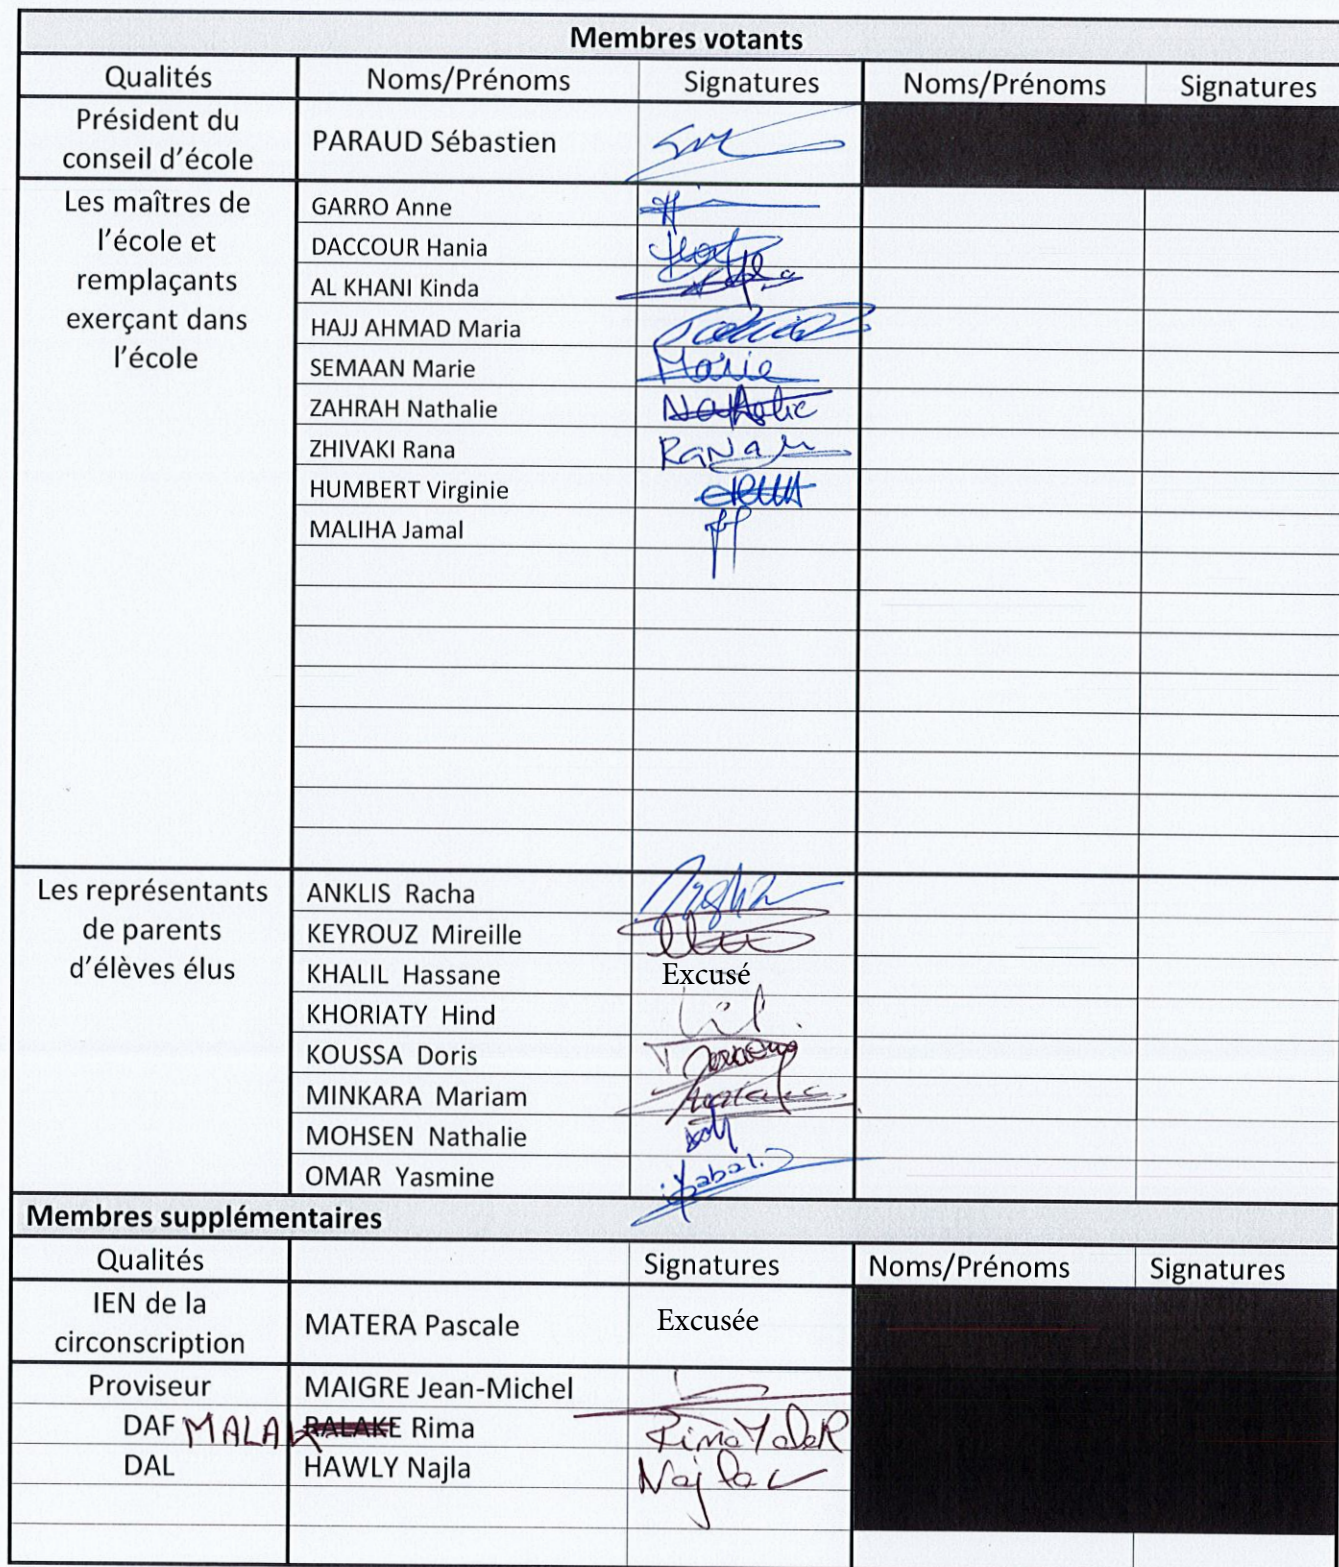 Membres votants
Qualités Noms/Prénoms Signatures Noms/Prénoms Signatures
Président du
conseil d'école
PARAUD Sébastien
Les maîtres de
l'école et
remplaçants
exerçant dans
l'école
GARRO Anne
DACCOUR Hania
AL KHANI Kinda
HAJJ AHMAD Maria
SEMAAN Marie Marie
ZAHRAH Nathalie Nathalie
ZHIVAKI Rana Rana
HUMBERT Virginie
MALIHA Jamal
Les représentants
de parents
d'élèves élus
ANKLIS Racha
KEYROUZ Mireille
KHALIL Hassane Excusé
KHORIATY Hind
KOUSSA Doris
MINKARA Mariam
MOHSEN Nathalie
OMAR Yasmine
Membres supplémentaires
Qualités Signatures Noms/Prénoms Signatures
IEN de la
circonscription
MATERA Pascale Excusée
Proviseur MAIGRE Jean-Michel
DAF MALAK BALAKE Rima Rima
DAL HAWLY Najla Najla